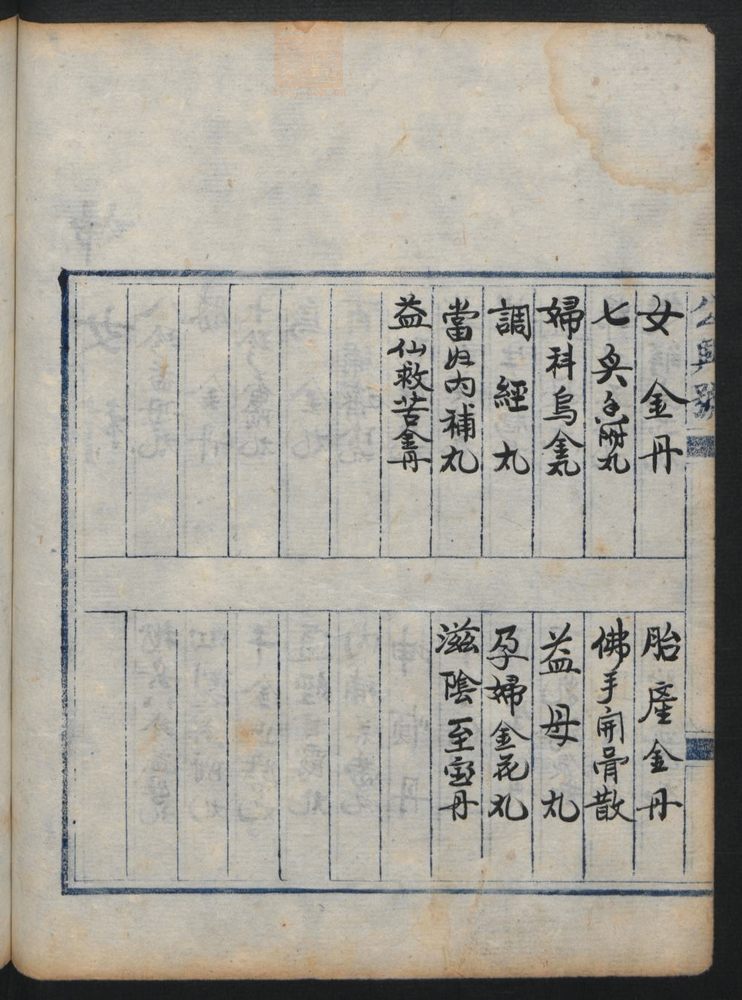 女金丹
七製香附丸
婦科烏金丸
調經丸
當歸內補丸
益仙救苦金丹
胎產金丹
佛手開骨散
益母丸
孕婦金花丸
滋陰至寶丹